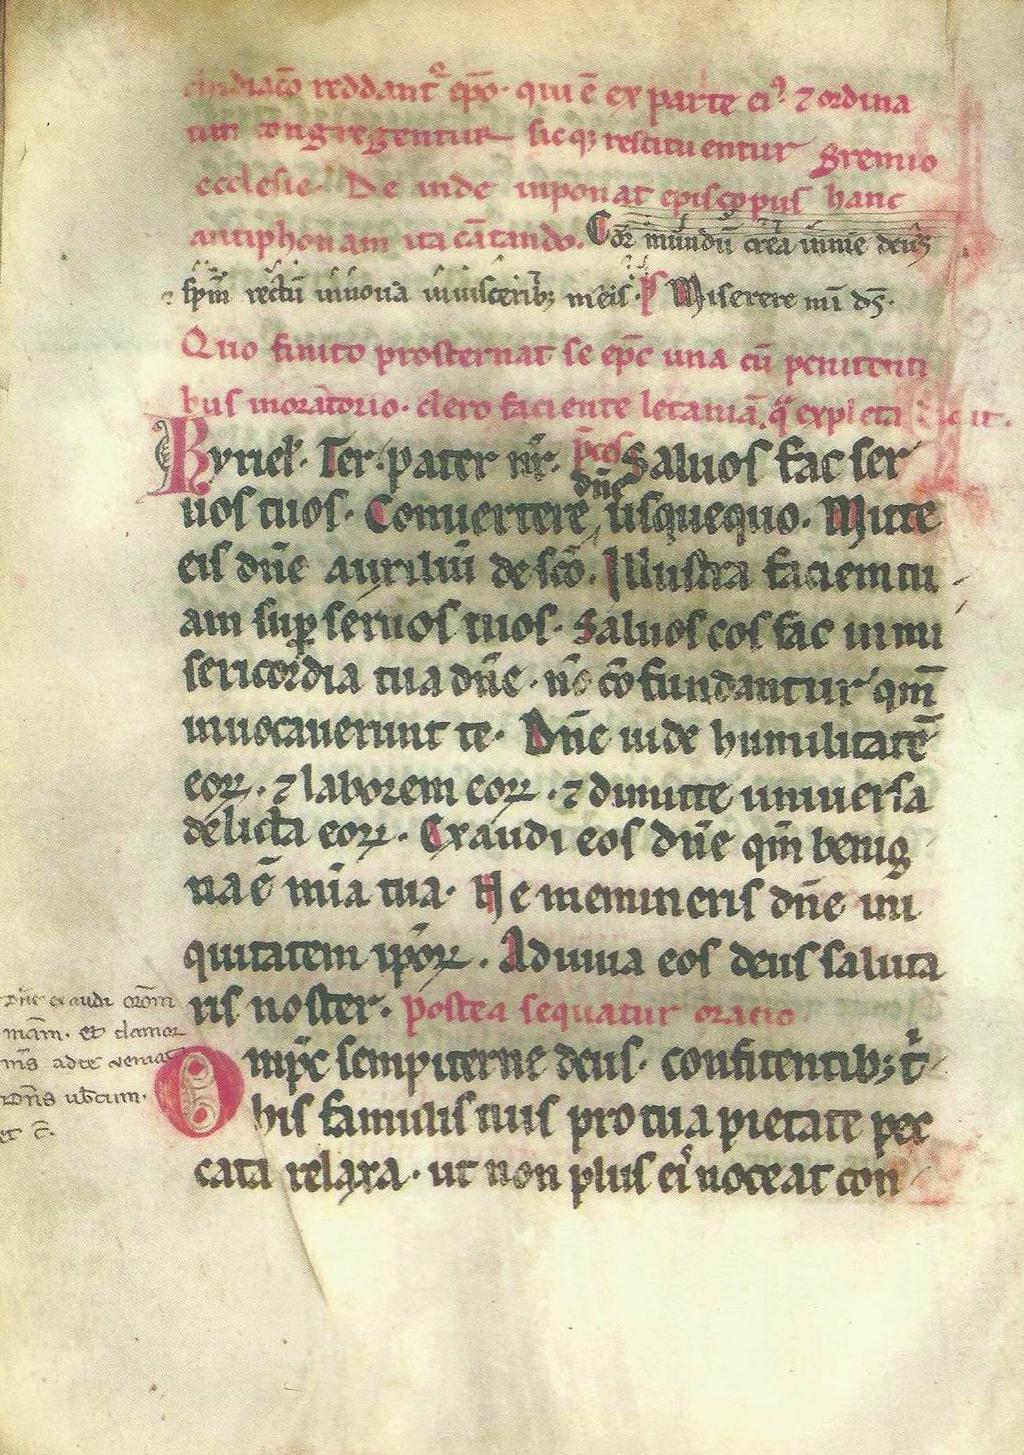 chidiacō reddant᷑ ep̄o· qui ē ex parte ei⁹ ⁊ ordina
tim congregentur sicq; restituentur gremio
ecclesie· De inde inponat episcopus hanc
antiphonam ita cātando. Cor mundū crea in me deus
⁊ sp̄m rectū innoua in uisceribꝫ meis· P̄ Miserere mī ds̄·
Quo finito prosternat se ep̄c una cū penitenti
bus in oratorio· clero faciente letaniā. q̄ expleta dicat.
Kyriel̄· Ter· pater nr̄· p̄ces Saluos fac ser
uos tuos· Conuertere dn̄e usquequo· Mitte
eis dn̄e auxiliū de sc̄o. Illustra faciem tu
am suꝑ seruos tuos· Saluos eos fac in mi
sericordia tua dn̄e· nō cō fundantur qm̄
inuocauerunt te· Dn̄e uide humilitatē
eoꝝ· ⁊ laborem eoꝝ· ⁊ dimitte uniuersa
delicta eoꝝ· Exaudi eos dn̄e qm̄ benig
na ē mīa tua· Ne memineris dn̄e ini
quitatem ip̄oꝝ. Adiuua eos deus saluta
ris noster· postea sequatur oratio
Dn̄e exaudi orōm
meam· et clamor
m̄s ad te veniat
Dn̄s ub̄cum·
et c̄.
Omp̄c sempiterne deus· confitentibꝫ t᷑
bis famulis tuis pro tua pietate pec
cata relaxa· ut non plus eis noceat con